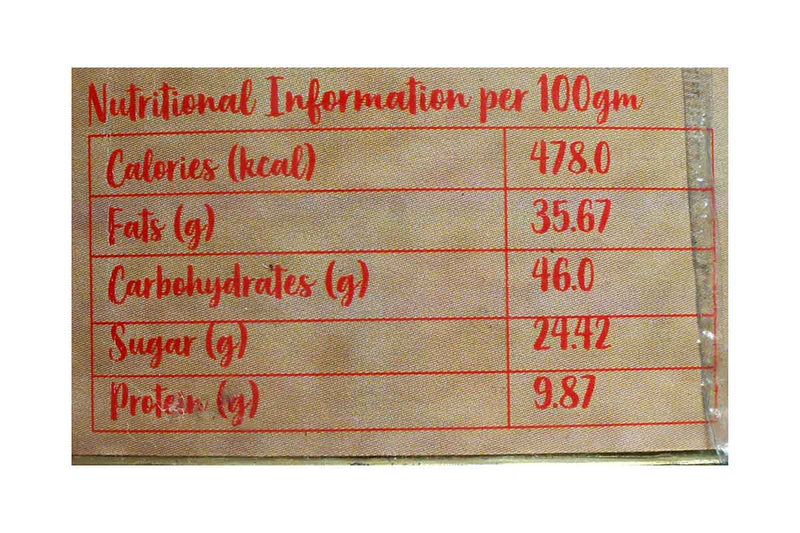 Nutritional Information per 100gm
Calories (kcal) 478.0
Fats (g) 35.67
Carbohydrates (g) 46.0
Sugar (g) 24.42
Protein (g) 9.87